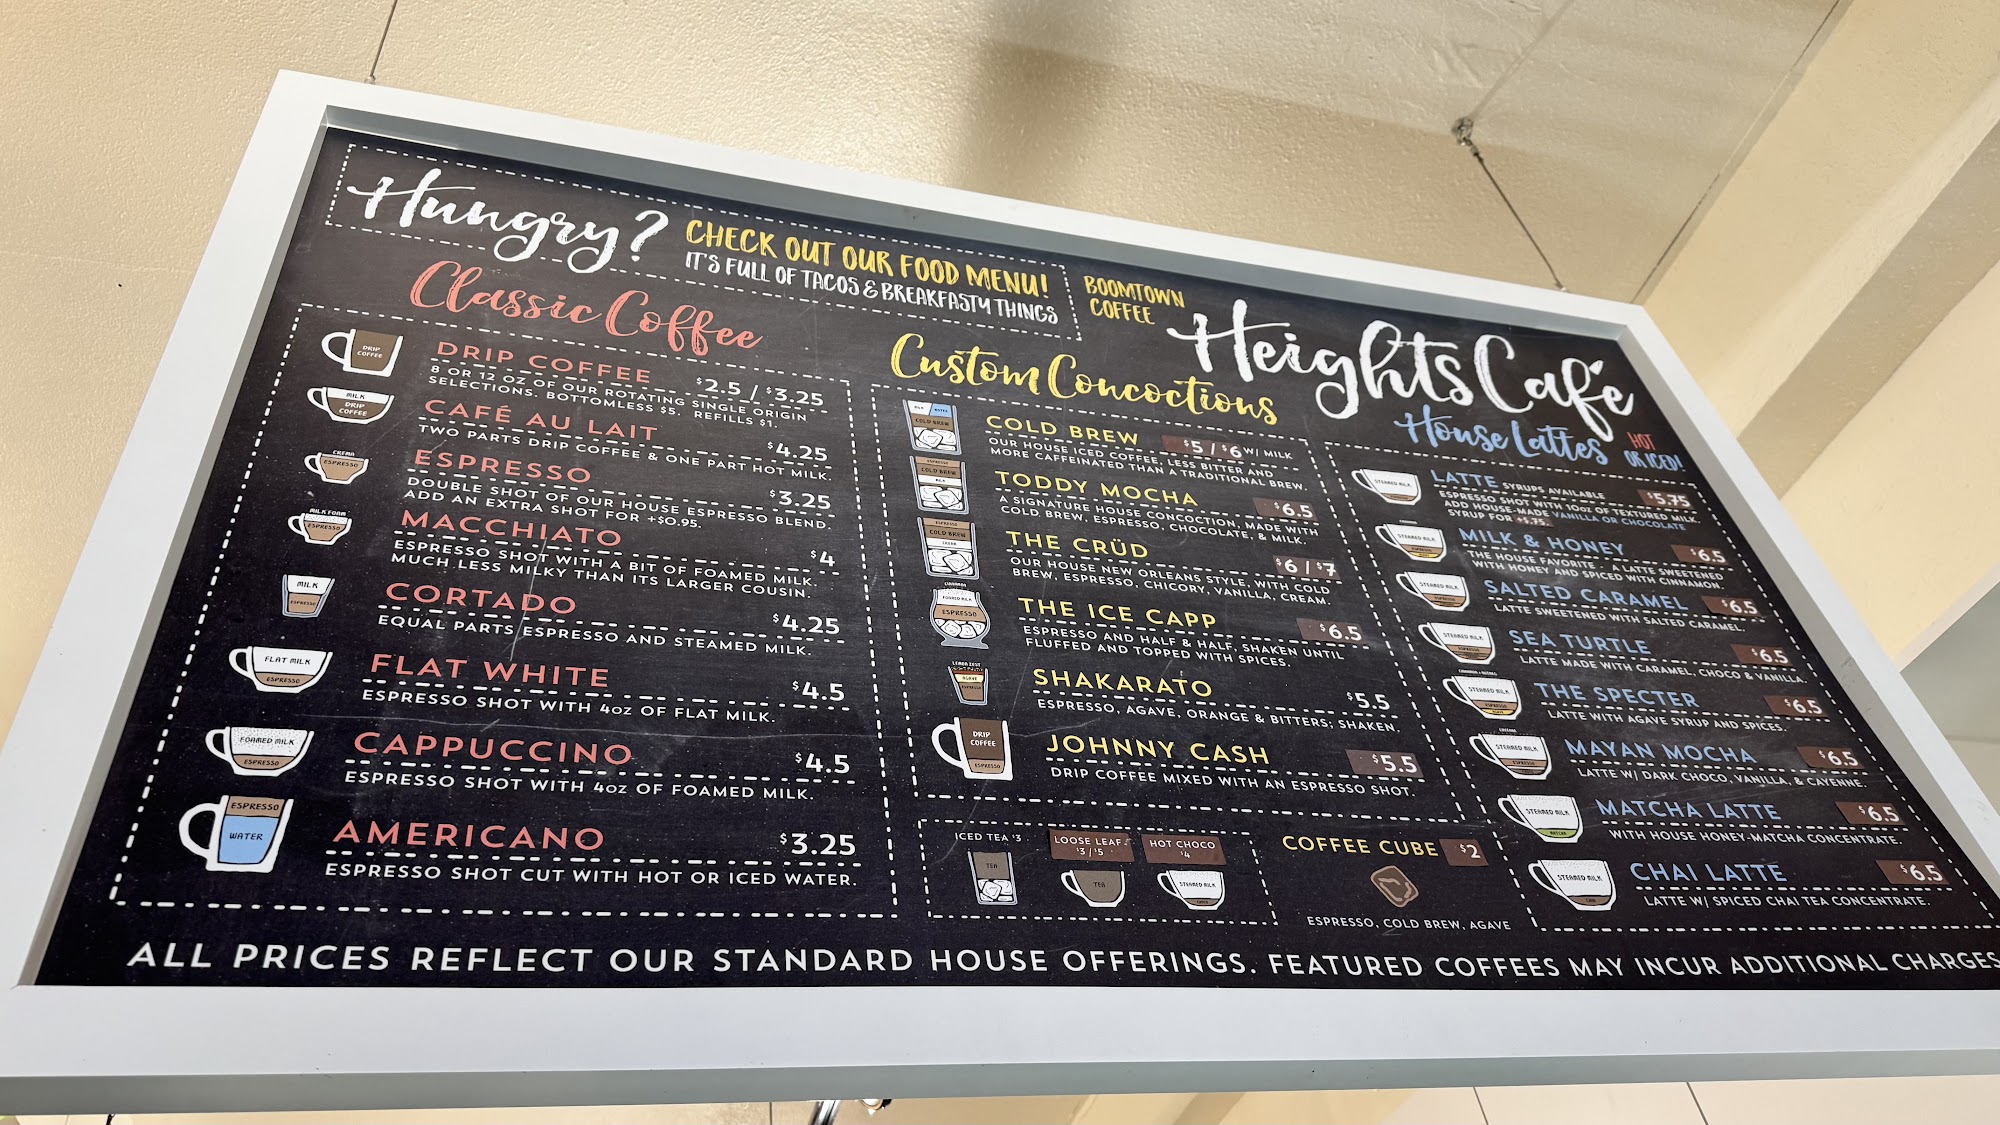 Hungry?
CHECK OUT OUR FOOD MENU!
IT'S FULL OF TACOS & BREAKFASTY THINGS
BOOMTOWN
COFFEE
Heights Café
Classic Coffee
DRIP COFFEE $2.5 / $3.25
8 OR 12 OZ OF OUR ROTATING SINGLE ORIGIN
SELECTIONS. BOTTOMLESS $5. REFILLS $1.
CAFÉ AU LAIT $4.25
TWO PARTS DRIP COFFEE & ONE PART HOT MILK.
ESPRESSO $3.25
DOUBLE SHOT OF OUR HOUSE ESPRESSO BLEND.
ADD AN EXTRA SHOT FOR +$0.95.
MACCHIATO $4
ESPRESSO SHOT WITH A BIT OF FOAMED MILK.
MUCH LESS MILKY THAN ITS LARGER COUSIN.
CORTADO $4.25
EQUAL PARTS ESPRESSO AND STEAMED MILK.
FLAT WHITE $4.5
ESPRESSO SHOT WITH 4OZ OF FLAT MILK.
CAPPUCCINO $4.5
ESPRESSO SHOT WITH 4OZ OF FOAMED MILK.
AMERICANO $3.25
ESPRESSO SHOT CUT WITH HOT OR ICED WATER.
DRIP
COFFEE
MILK
DRIP
COFFEE
CREMA
ESPRESSO
MILK FOAM
ESPRESSO
MILK
ESPRESSO
FLAT MILK
ESPRESSO
FOAMED MILK
ESPRESSO
ESPRESSO
WATER
Custom Concoctions
COLD BREW $5 / $6 W/ MILK
OUR HOUSE ICED COFFEE, LESS BITTER AND
MORE CAFFEINATED THAN A TRADITIONAL BREW.
TODDY MOCHA $6.5
A SIGNATURE HOUSE CONCOCTION, MADE WITH
COLD BREW, ESPRESSO, CHOCOLATE, & MILK.
THE CRÜD $6 / $7
OUR HOUSE NEW ORLEANS STYLE, WITH COLD
BREW, ESPRESSO, CHICORY, VANILLA, CREAM.
THE ICE CAPP $6.5
ESPRESSO AND HALF & HALF, SHAKEN UNTIL
FLUFFED AND TOPPED WITH SPICES.
SHAKARATO $5.5
ESPRESSO, AGAVE, ORANGE & BITTERS; SHAKEN.
JOHNNY CASH $5.5
DRIP COFFEE MIXED WITH AN ESPRESSO SHOT.
MILK WATER
COLD BREW
ESPRESSO
COLD BREW
MILK
ESPRESSO
COLD BREW
CREAM
CINNAMON
FOAMED MILK
ESPRESSO
LEMON ZEST
AGAVE
ESPRESSO
DRIP
COFFEE
ESPRESSO
ICED TEA $3
TEA
LOOSE LEAF
$3 / $5
TEA
HOT CHOCO
$4
STEAMED MILK
COFFEE CUBE $2
ESPRESSO, COLD BREW, AGAVE
House Lattes
HOT
OR ICED!
LATTE SYRUPS AVAILABLE $5.75
ESPRESSO SHOT WITH 10OZ OF TEXTURED MILK.
ADD HOUSE-MADE VANILLA OR CHOCOLATE
SYRUP FOR +$.75.
MILK & HONEY $6.5
THE HOUSE FAVORITE... A LATTE SWEETENED
WITH HONEY AND SPICED WITH CINNAMON.
SALTED CARAMEL $6.5
LATTE SWEETENED WITH SALTED CARAMEL.
SEA TURTLE $6.5
LATTE MADE WITH CARAMEL, CHOCO & VANILLA.
THE SPECTER $6.5
LATTE WITH AGAVE SYRUP AND SPICES.
MAYAN MOCHA $6.5
LATTE W/ DARK CHOCO, VANILLA, & CAYENNE.
MATCHA LATTE $6.5
WITH HOUSE HONEY-MATCHA CONCENTRATE.
CHAI LATTE $6.5
LATTE W/ SPICED CHAI TEA CONCENTRATE.
STEAMED MILK
STEAMED MILK
STEAMED MILK
ESPRESSO
STEAMED MILK
ESPRESSO
STEAMED MILK
ESPRESSO
STEAMED MILK
ESPRESSO
STEAMED MILK
MATCHA
STEAMED MILK
CHAI
ALL PRICES REFLECT OUR STANDARD HOUSE OFFERINGS. FEATURED COFFEES MAY INCUR ADDITIONAL CHARGES